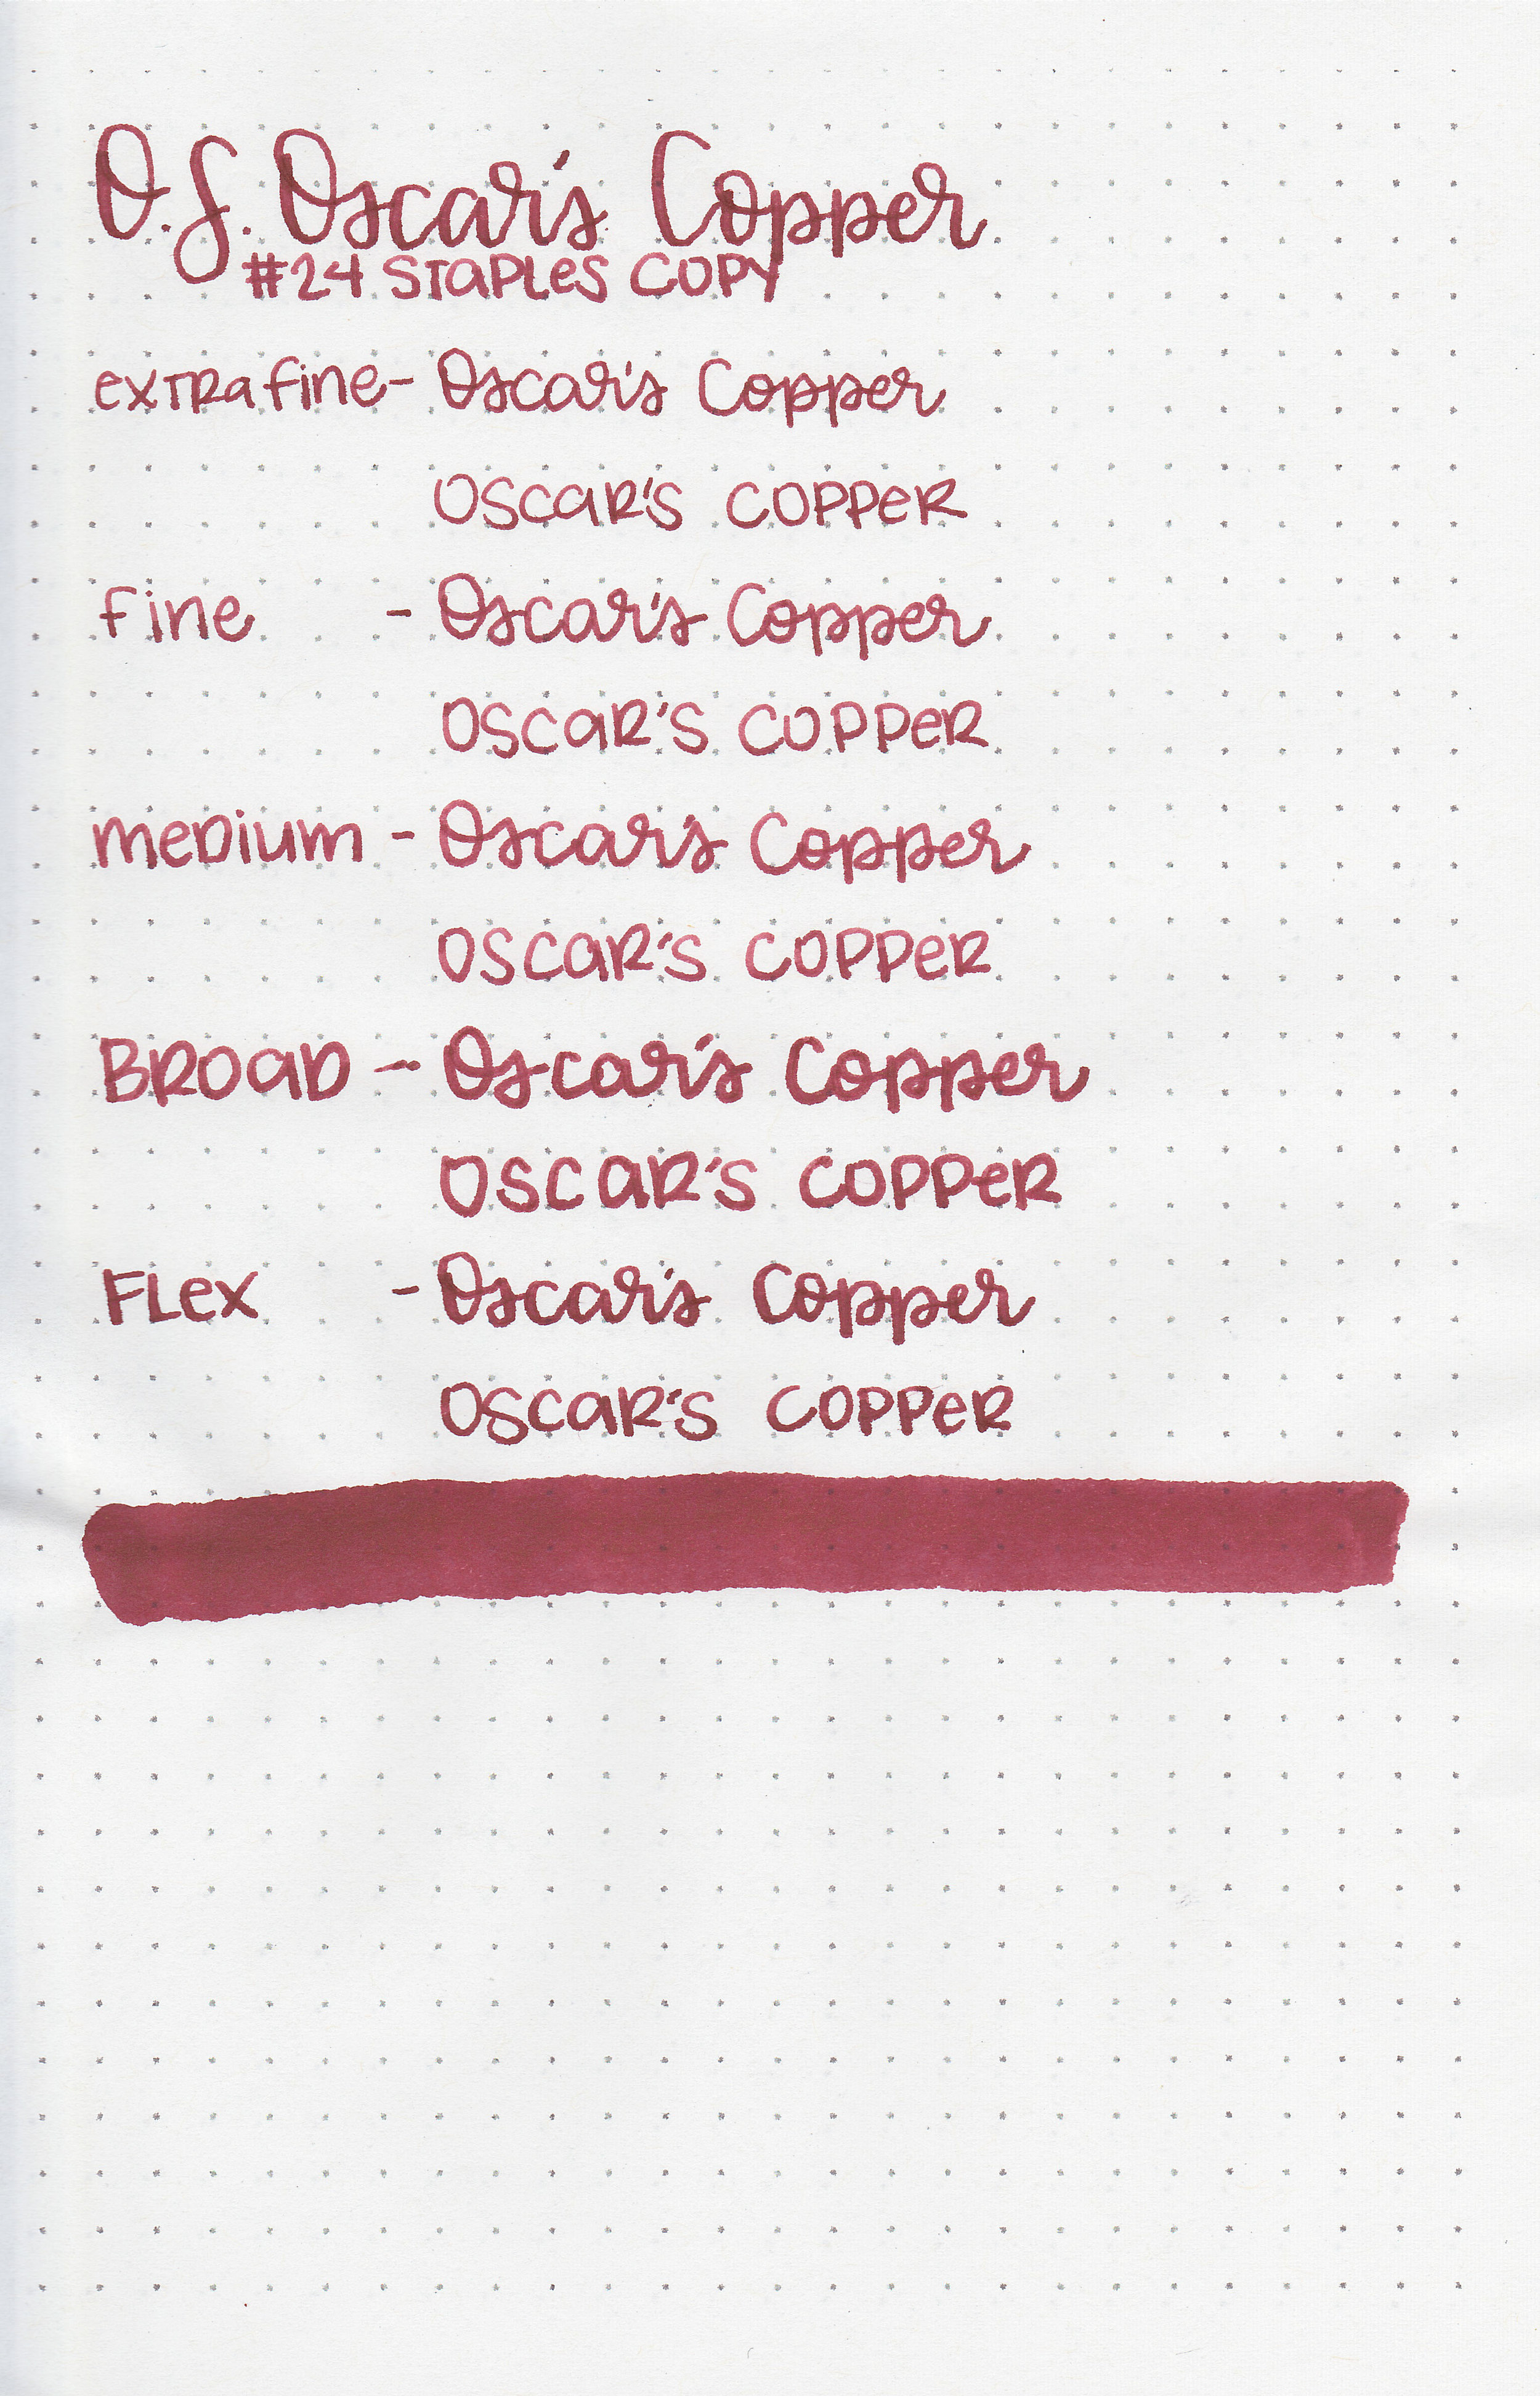 O.S. Oscar's Copper
#24 STAPLES COPY
extra fine - Oscar's Copper
OSCAR'S COPPER
fine - Oscar's Copper
OSCAR'S COPPER
medium - Oscar's Copper
OSCAR'S COPPER
BROAD - Oscar's Copper
OSCAR'S COPPER
FLEX - Oscar's Copper
OSCAR'S COPPER